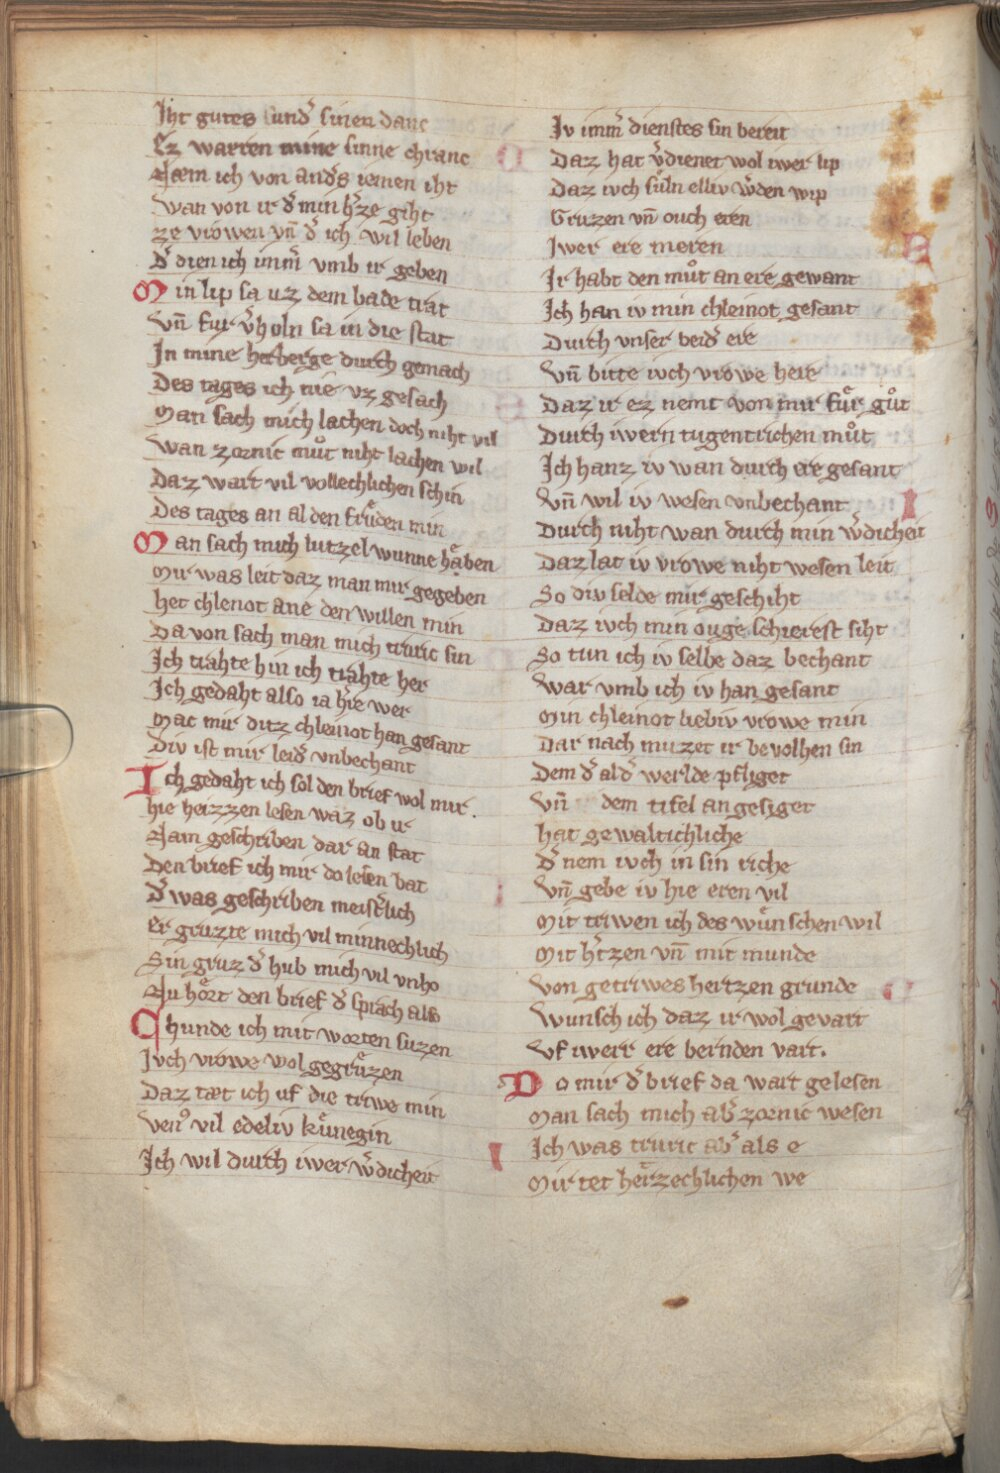 Iht gutes sund͛ sinen danc
Ez warren mine sinne chranc
Næm ich von and͛s iemen iht
Wan von ir d͛ min h͛ze giht
ze vrowen vn̄ d͛ ich wil leben
D͛ dien ich imm͛ vmb ir geben
Min lip sa uz dem bade trat
Vn̄ fur v͛holn sa in die stat
In mine herberge durch gemach
Des tages ich nie vz gesach
Man sach mich lachen doch niht vil
Wan zornic můt niht lachen wil
Daz wart vil vollechlichen schin
Des tages an al den frͤuden min
Man sach mich lutzel wunne haben
Mir was leit daz man mir gegeben
het chlenot ane den willen min
Da von sach man mich truric sin
Ich trahte hin ich trahte her
Ich gedaht also ia h͛re wer
Mac mir ditz chleinot han gesant
Div ist mir leid͛ vnbechant
Ich gedaht ich sol den brief wol mir.
hie heizzen lesen waz ob ir
Nam geschriben dar an stat
Den brief ich mir do lesen bat
D͛ was geschriben meist͛lich
er gruzte mich vil minnechlich
Sin gruz d͛ hub mich vil vnho
Nu hoͤrt den brief d͛ sprach also
Chunde ich mit worten suzen
Ivch vrowe wol gegruͤzen
Daz tæt ich uf die triwe min
Ven⁹ vil edeliv kuͤnegin
Ich wil durch iwer w͛dicheit
Iv imm͛ dienstes sin bereit
Daz hat v͛dienet wol iwer lip
Daz ivch suͤln elliv w͛den wip
Gruzen vn̄ ouch eren
Iwer ere meren
Ir habt den můt an ere gewant
Ich han iv min chleinot gesant
Durch vnser beid͛ ere
Vn̄ bitte ivch vrowe here
Daz ir ez nemt von mir fuͤr gůt
Durch iwern tugentrichen můt
Ich hanz iv wan durch ere gesant
Vn̄ wil iv wesen vnbechant
Durch niht wan durch min w͛dicheit
Daz lat iv vrowe niht wesen leit
So div selde mir geschiht
Daz ivch min ouge schierest siht
So tun ich iv selbe daz bechant
War vmb ich iv han gesant
Min chleinot liebiv vrowe min
Dar nach muzet ir bevolhen sin
Dem d͛ ald͛ werlde pfliget
Vn̄ dem tifel angesiget
hat gewaltichliche
D͛ nem ivch in sin riche
Vn̄ gebe iv hie eren vil
Mit triwen ich des wuͤnschen wil
Mit h͛tzen vn̄ mit munde
Von getriwes hertzen grunde
Wunsch ich daz ir wol gevart
Vf iwerr ere bernden vart.
Do mir d͛ brief da wart gelesen
Man sach mich ab͛ zornic wesen
Ich was truric ab͛ als e
Mir tet herzechlichen we